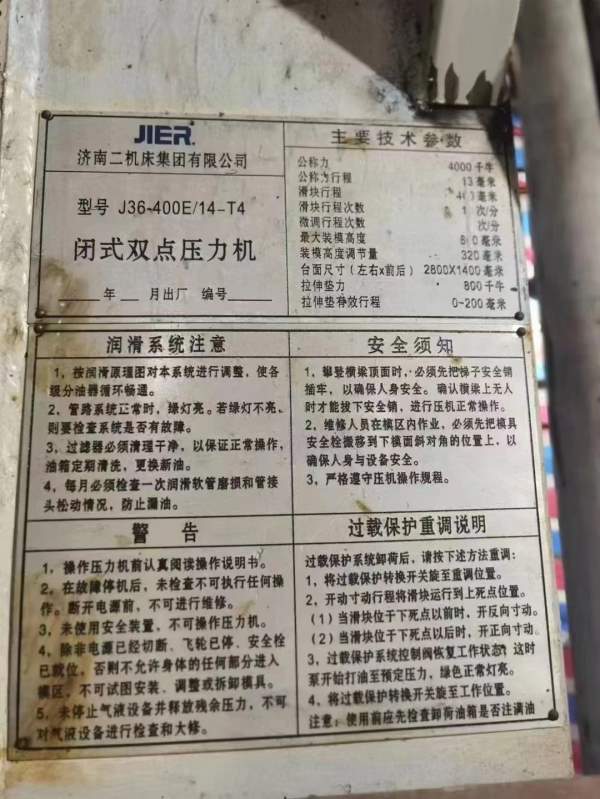 JIER.
济南二机床集团有限公司
型号 J36-400E/14-T4
闭式双点压力机
年 月出厂 编号
主要技术参数
公称力 4000 千牛
公称力行程 13 毫米
滑块行程 毫米
滑块行程次数 次/分
微调行程次数 次/分
最大装模高度 毫米
装模高度调节量 320 毫米
台面尺寸(左右x前后) 2800X1400 毫米
拉伸垫力 800 千牛
拉伸垫有效行程 0~200 毫米
润滑系统注意
1、按润滑原理图对本系统进行调整,使各
级分油器循环畅通。
2、管路系统正常时,绿灯亮。若绿灯不亮,
则要检查系统是否有故障。
3、过滤器必须清理干净,以保证正常操作,
油箱定期清洗,更换新油。
4、每月必须检查一次润滑软管磨损和管接
头松动情况,防止漏油。
安全须知
1、攀登横梁顶面时,必须先把梯子安全销
插牢,以确保人身安全。确认横梁上无人
时才能拔下安全销,进行压机正常操作。
2、维修人员在模区内作业,必须先把模具
安全栓搬移到下模面斜对角的位置上,以
确保人身与设备安全。
3、严格遵守压机操作规程。
警告
1、操作压力机前认真阅读操作说明书。
2、在故障停机后,未检查不可执行任何操
作。断开电源前,不可进行维修。
3、未使用安全装置、不可操作压力机。
4、除非电源已经切断、飞轮已停、安全栓
已就位,否则不允许身体的任何部分进入
模区,不可试图安装、调整或拆卸模具。
5、未停止气液设备并释放残余压力,不可
对气液设备进行检查和大修。
过载保护重调说明
过载保护系统卸荷后,请按下述方法重调:
1、将过载保护转换开关旋至重调位置。
2、开动寸动行程将滑块运行到上死点位置。
(1)当滑块位于下死点以前时,开反向寸动。
(2)当滑块位于下死点以后时,开正向寸动。
3、过载保护系统控制阀恢复工作状态,这时
泵开始打油至预定压力,绿色正常灯亮。
4、将过载保护转换开关旋至工作位置。
注意:使用前应先检查卸荷油箱是否注满油